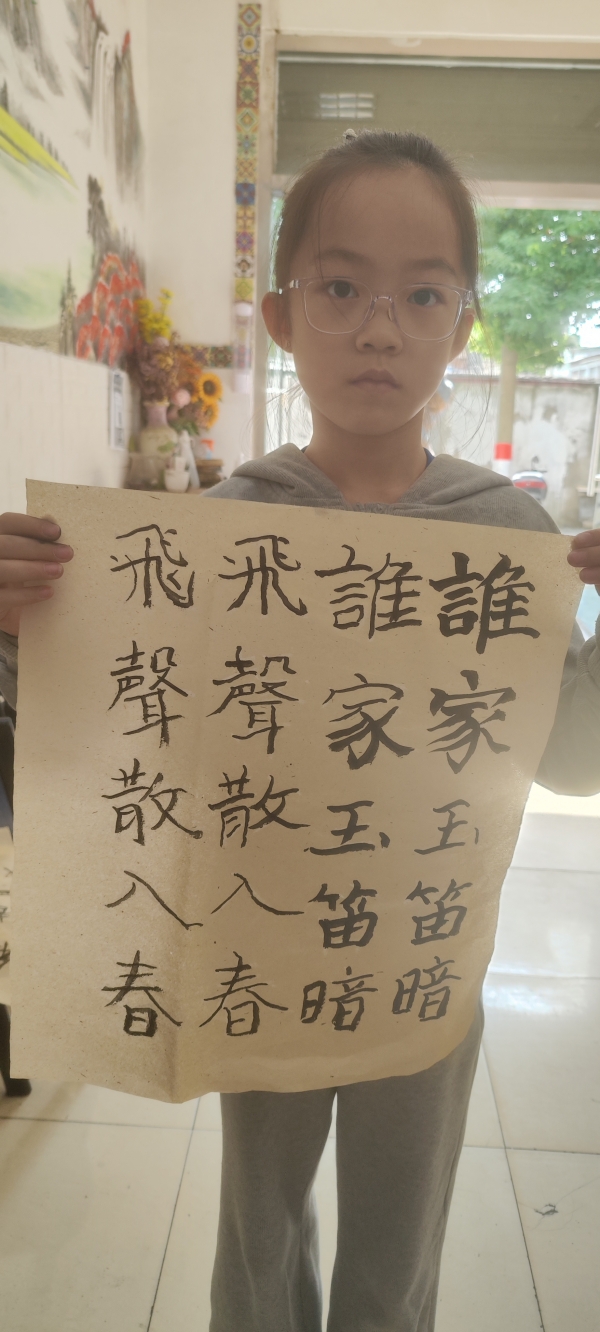 誰家玉笛暗
誰家玉笛暗
飛聲散入春
飛聲散入春